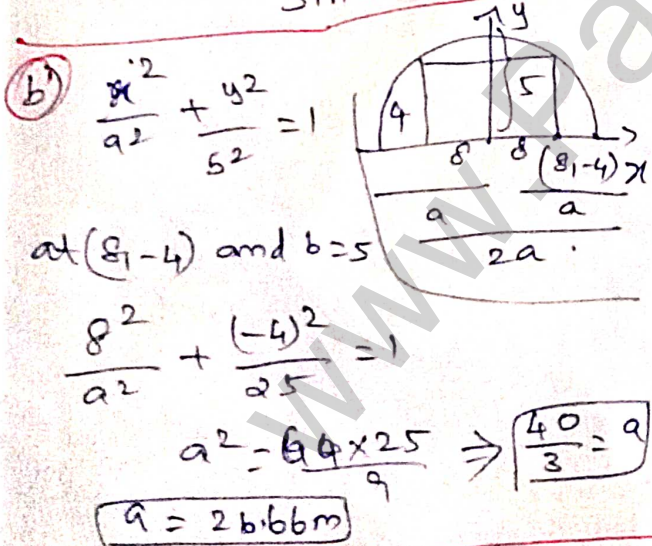 b)
x²/a² + y²/5² = 1
y
4
5
8
8
(8,-4)
x
a
a
2a
at (8,-4) and b=5
8²/a² + (-4)²/25 = 1
a² = 64×25/9 ⇒ 40/3 = a
a = 26.66m
www.Pa